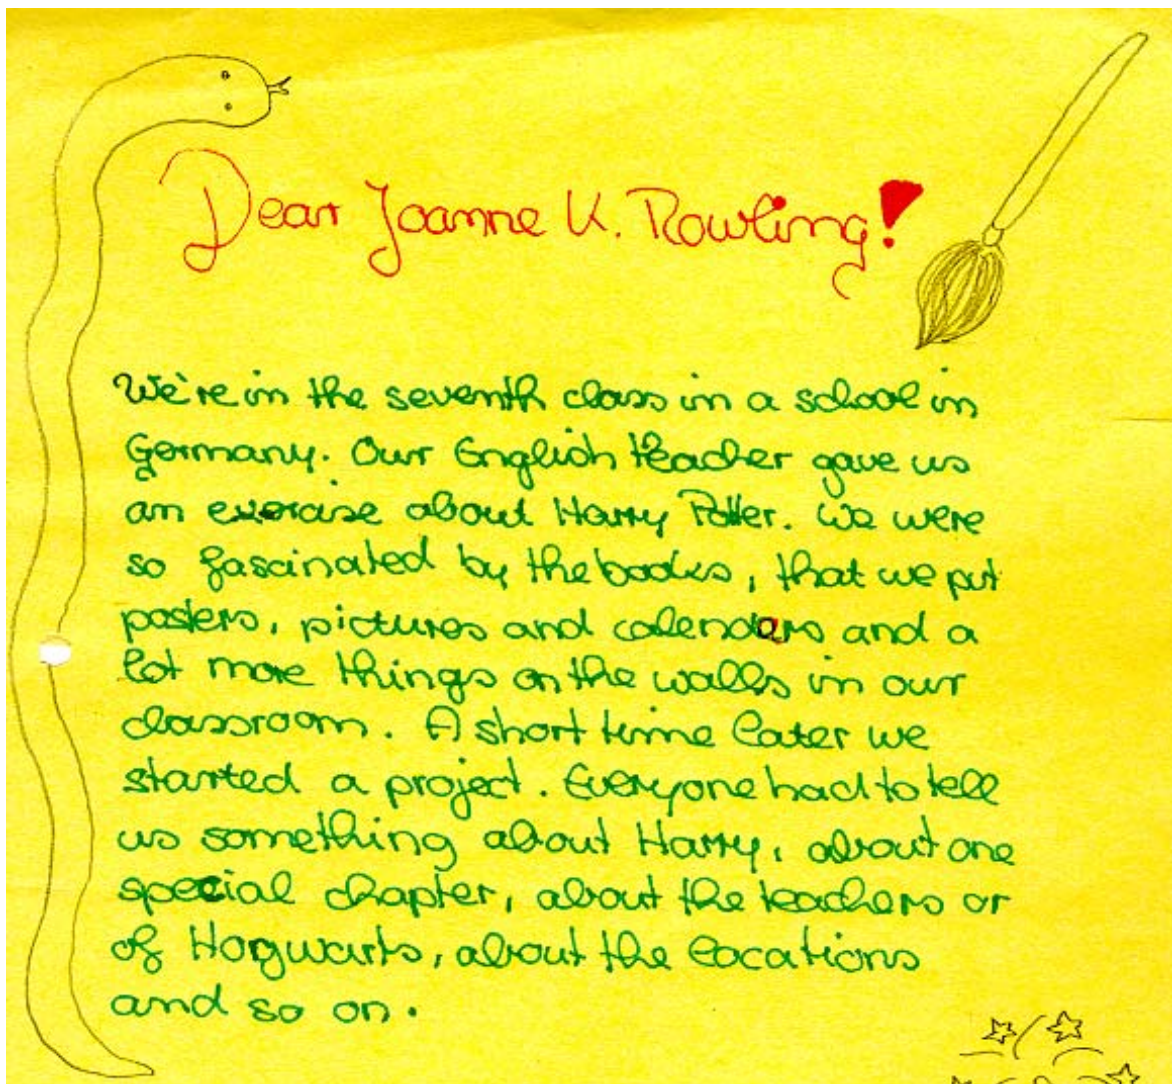 Dear Joanne K. Rowling!
We're in the seventh class in a school in
Germany. Our English teacher gave us
an exercise about Harry Potter. We were
so fascinated by the books, that we put
posters, pictures and calenders and a
lot more things on the walls in our
classroom. A short time later we
started a project. Everyone had to tell
us something about Harry, about one
special chapter, about the teachers or
of Hogwarts, about the locations
and so on.